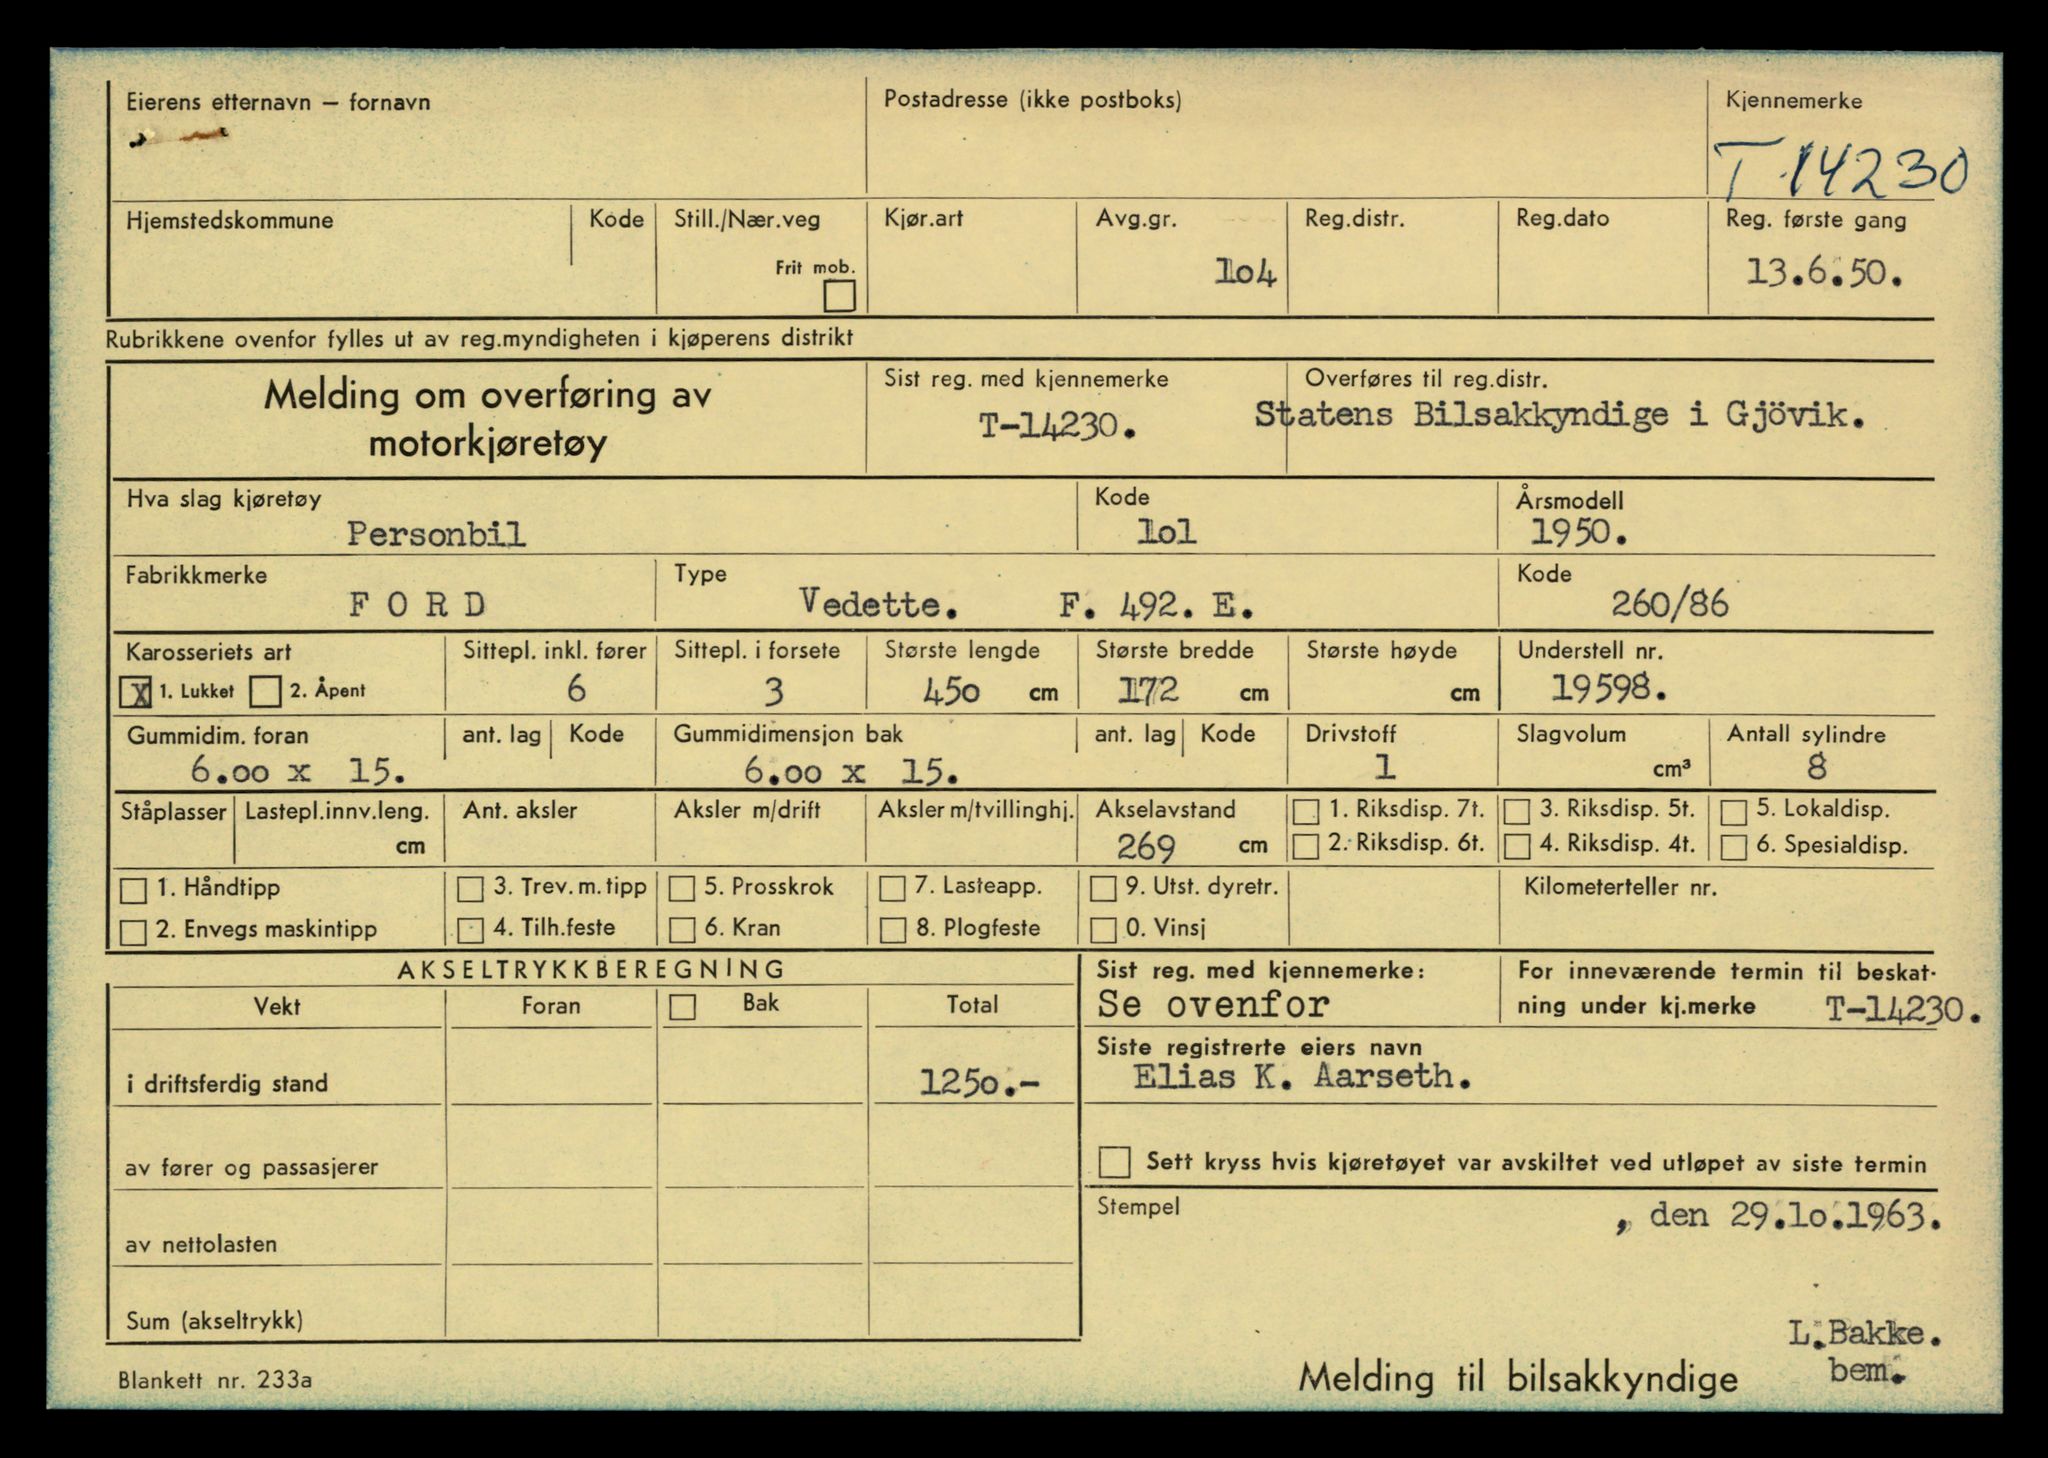 Eierens etternavn – fornavn
Postadresse (ikke postboks)
Kjennemerke
T-14230
Hjemstedskommune
Kode
Still./Nær.veg
Frit mob.
Kjør.art
Avg.gr.
104
Reg.distr.
Reg.dato
Reg. første gang
13.6.50.
Rubrikkene ovenfor fylles ut av reg.myndigheten i kjøperens distrikt
Melding om overføring av
motorkjøretøy
Sist reg. med kjennemerke
T-14230.
Overføres til reg.distr.
Statens Bilsakkyndige i Gjövik.
Hva slag kjøretøy
Personbil
Kode
101
Årsmodell
1950.
Fabrikkmerke
F O R D
Type
Vedette. F. 492. E.
Kode
260/86
Karosseriets art
X 1. Lukket 2. Åpent
Sittepl. inkl. fører
6
Sittepl. i forsete
3
Største lengde
450 cm
Største bredde
172 cm
Største høyde
cm
Understell nr.
19598.
Gummidim. foran
6.00 x 15.
ant. lag
Kode
Gummidimensjon bak
6.00 x 15.
ant. lag
Kode
Drivstoff
1
Slagvolum
cm³
Antall sylindre
8
Ståplasser
Lastepl.innv.leng.
cm
Ant. aksler
Aksler m/drift
Aksler m/tvillinghj.
Akselavstand
269 cm
1. Riksdisp. 7t.
2. Riksdisp. 6t.
3. Riksdisp. 5t.
4. Riksdisp. 4t.
5. Lokaldisp.
6. Spesialdisp.
1. Håndtipp
2. Envegs maskintipp
3. Trev. m. tipp
4. Tilh.feste
5. Prosskrok
6. Kran
7. Lasteapp.
8. Plogfeste
9. Utst. dyretr.
0. Vinsj
Kilometerteller nr.
AKSELTRYKKBEREGNING
Vekt
Foran
Bak
Total
i driftsferdig stand
1250.-
av fører og passasjerer
av nettolasten
Sum (akseltrykk)
Sist reg. med kjennemerke:
Se ovenfor
For inneværende termin til beskat-
ning under kj.merke T-14230.
Siste registrerte eiers navn
Elias K. Aarseth.
Sett kryss hvis kjøretøyet var avskiltet ved utløpet av siste termin
Stempel
, den 29.10.1963.
L.Bakke.
bem.
Blankett nr. 233a
Melding til bilsakkyndige